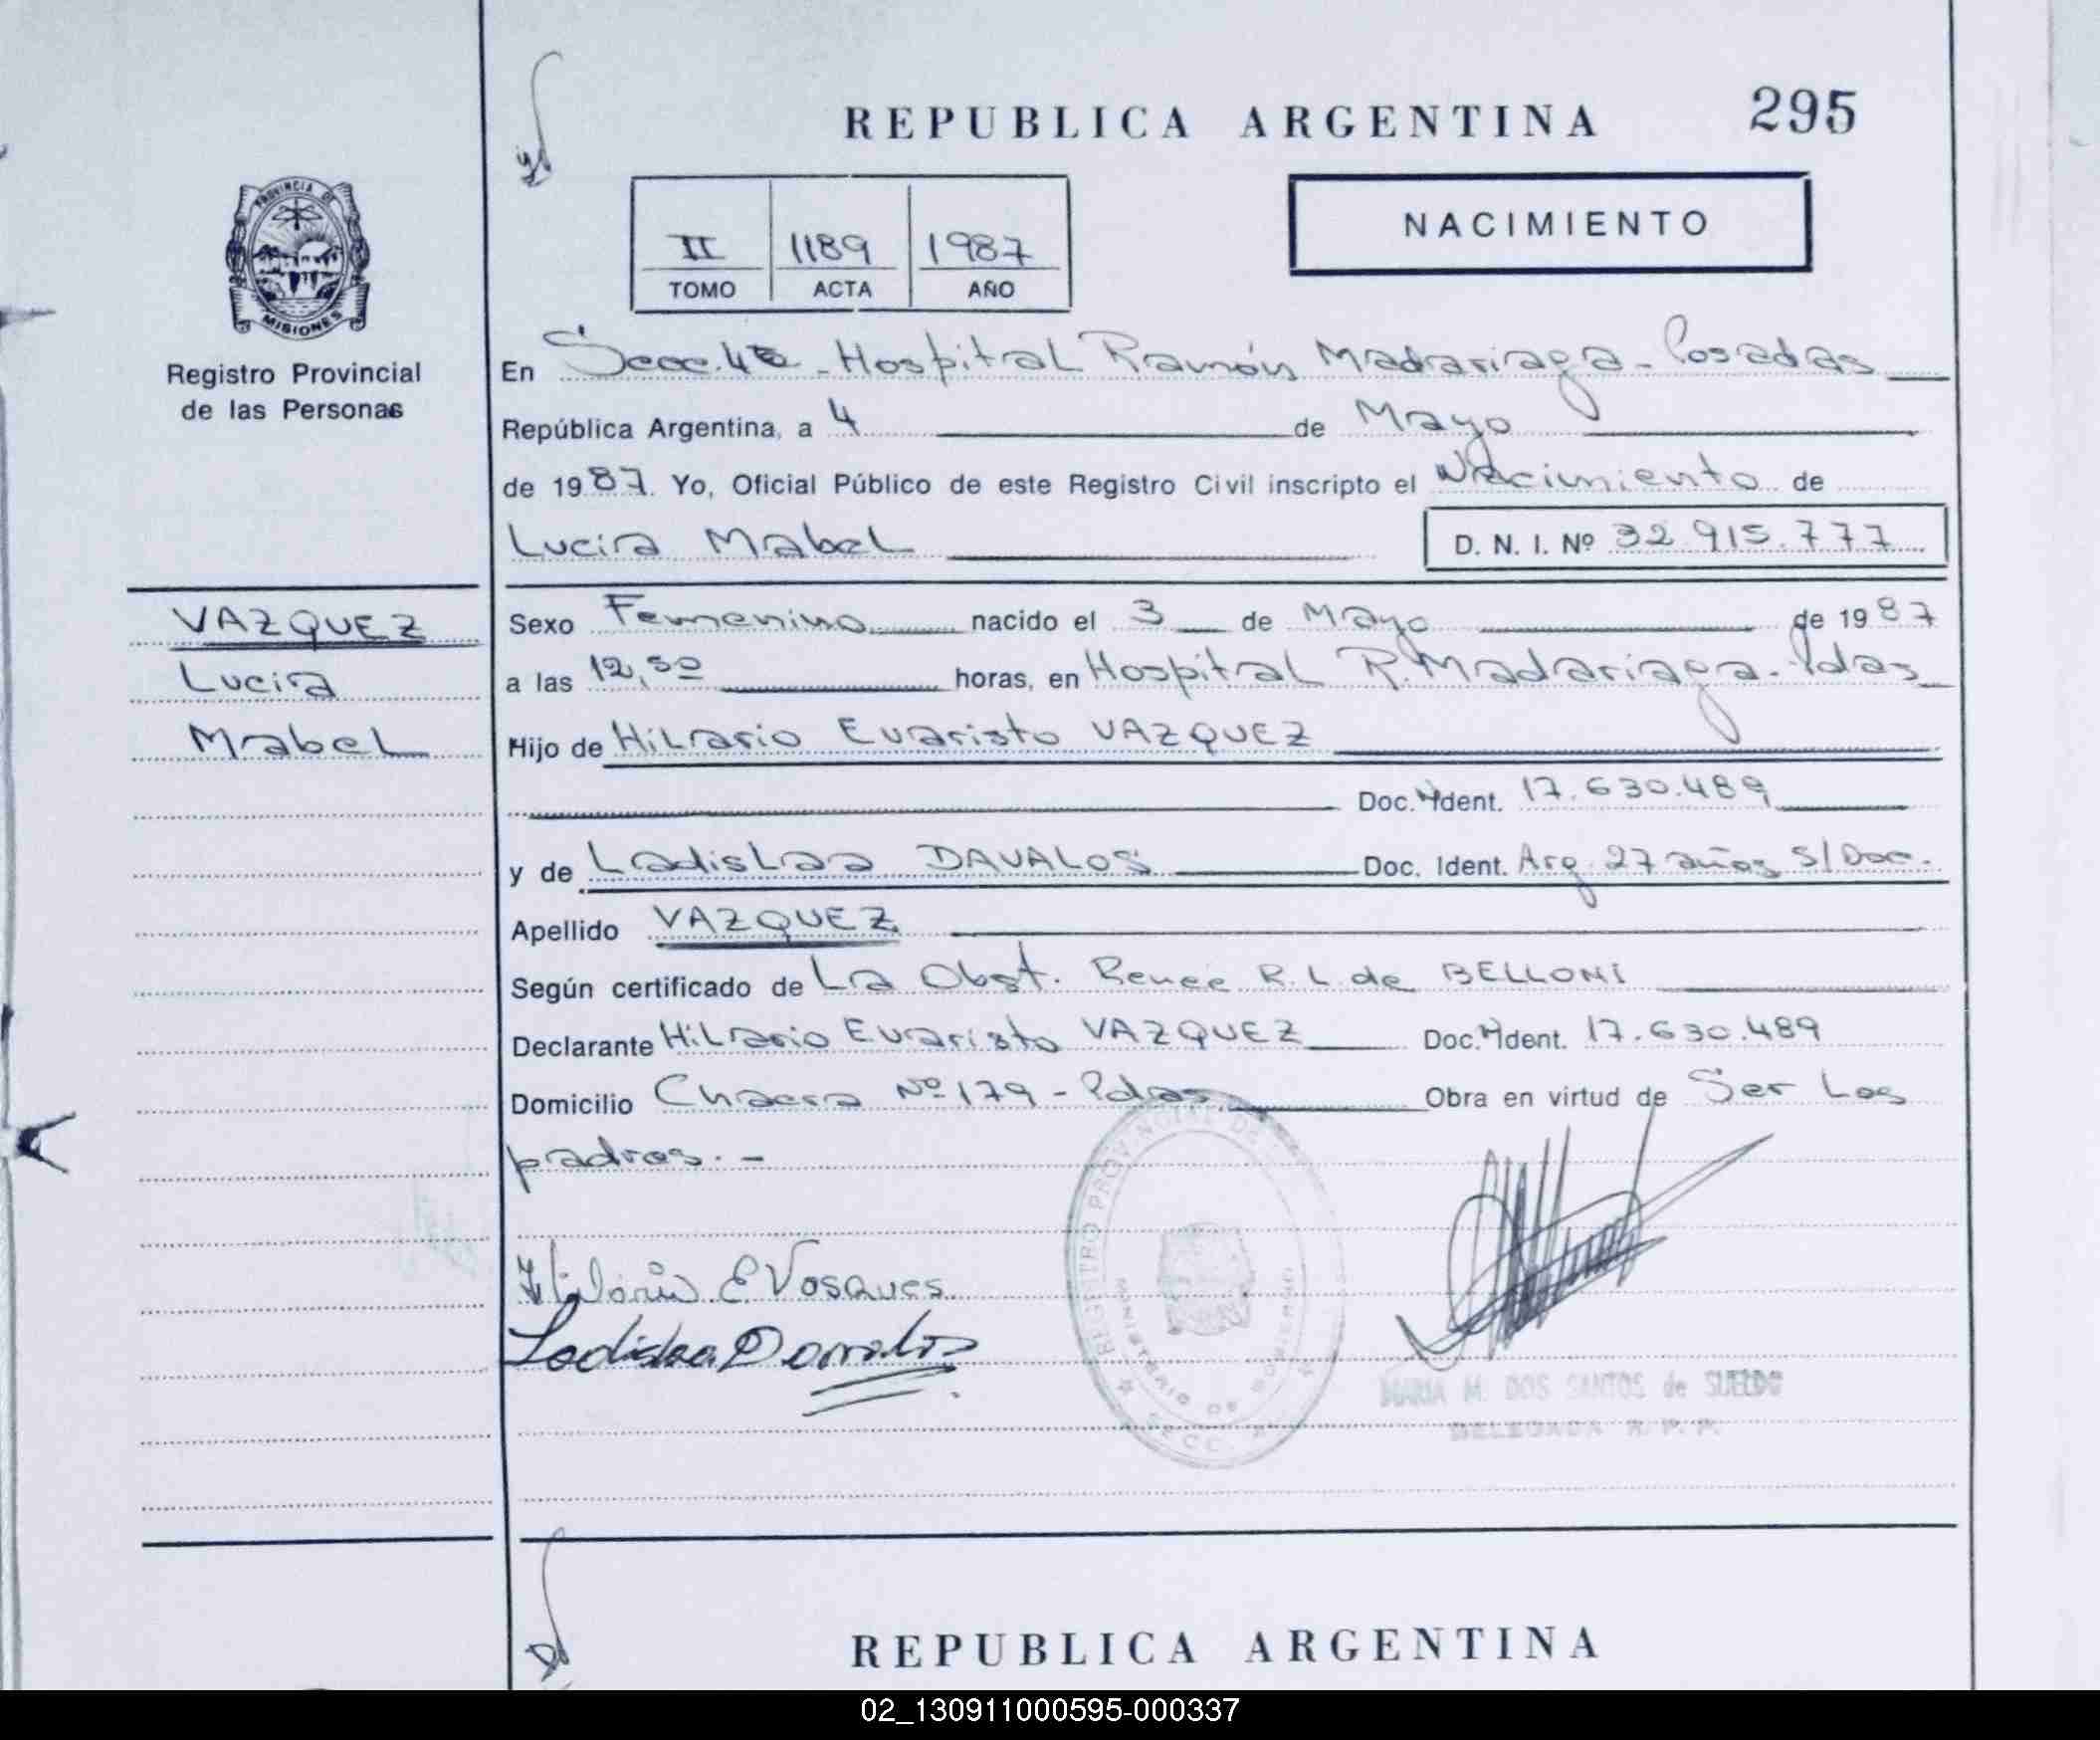 REPUBLICA ARGENTINA 295
PROVINCIA DE
MISIONES
II 1189 1987
TOMO ACTA AÑO
NACIMIENTO
Registro Provincial
de las Personas
En Secc. 4ta - Hospital Ramón Madariaga - Posadas
República Argentina, a 4 de Mayo
de 1987. Yo, Oficial Público de este Registro Civil inscripto el Nacimiento de
Lucira Mabel D. N. I. Nº 32.915.777
VAZQUEZ
Lucira
Mabel
Sexo Femenino nacido el 3 de Mayo de 1987
a las 12,50 horas, en Hospital R. Madariaga - Pdas
Hijo de Hilario Evaristo VAZQUEZ
Doc. Ident. 17.630.489
y de Ladislaa DAVALOS Doc. Ident. Arg. 27 años S/Doc.
Apellido VAZQUEZ
Según certificado de La Obst. Renée R. L. de BELLONI
Declarante Hilario Evaristo VAZQUEZ Doc. Ident. 17.630.489
Domicilio Chacra Nº 179 - Pdas Obra en virtud de Ser Los
padres. -
REGISTRO PROVINCIAL DE
MINISTERIO DE GOBIERNO
SECC.
Hilario E Vosques
Ladislaa Davalos
MARIA M. DOS SANTOS de SUELDO
DELEGADA R. P. P.
REPUBLICA ARGENTINA
02_130911000595-000337